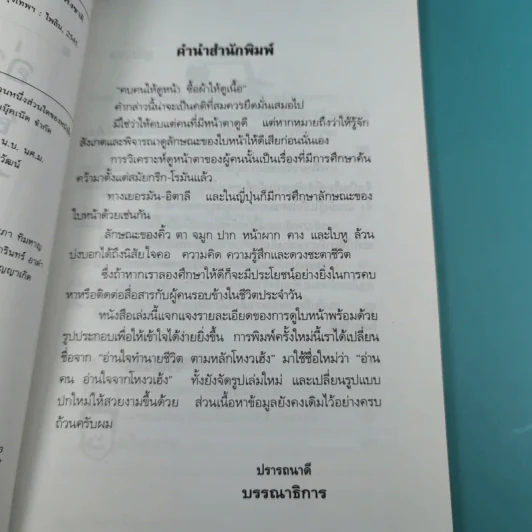 คำนำสำนักพิมพ์
"คบคนให้ดูหน้า ซื้อผ้าให้ดูเนื้อ"
คำกล่าวนี้น่าจะเป็นคติที่สมควรยึดมั่นเสมอไป
มิใช่ว่าให้คบแต่คนที่มีหน้าตาดูดี แต่หากหมายถึงว่าให้รู้จัก
สังเกตและพิจารณาดูลักษณะของใบหน้าให้ดีเสียก่อนนั่นเอง
การวิเคราะห์ดูหน้าตาของผู้คนนั้นเป็นเรื่องที่มีการศึกษาค้น
คว้ามาตั้งแต่สมัยกรีก-โรมันแล้ว
ทางเยอรมัน-อิตาลี และในญี่ปุ่นก็มีการศึกษาลักษณะของ
ใบหน้าด้วยเช่นกัน
ลักษณะของคิ้ว ตา จมูก ปาก หน้าผาก คาง และใบหู ล้วน
บ่งบอกได้ถึงนิสัยใจคอ ความคิด ความรู้สึกและดวงชะตาชีวิต
ซึ่งถ้าหากเราลองศึกษาให้ดีก็จะมีประโยชน์อย่างยิ่งในการคบ
หาหรือติดต่อสื่อสารกับผู้คนรอบข้างในชีวิตประจำวัน
หนังสือเล่มนี้แจกแจงรายละเอียดของการดูใบหน้าพร้อมด้วย
รูปประกอบเพื่อให้เข้าใจได้ง่ายยิ่งขึ้น การพิมพ์ครั้งใหม่นี้เราได้เปลี่ยน
ชื่อจาก "อ่านใจทำนายชีวิต ตามหลักโหงวเฮ้ง" มาใช้ชื่อใหม่ว่า "อ่าน
คน อ่านใจจากโหงวเฮ้ง" ทั้งยังจัดรูปเล่มใหม่ และเปลี่ยนรูปแบบ
ปกใหม่ให้สวยงามขึ้นด้วย ส่วนเนื้อหาข้อมูลยังคงเดิมไว้อย่างครบ
ถ้วนครับผม
ปรารถนาดี
บรรณาธิการ